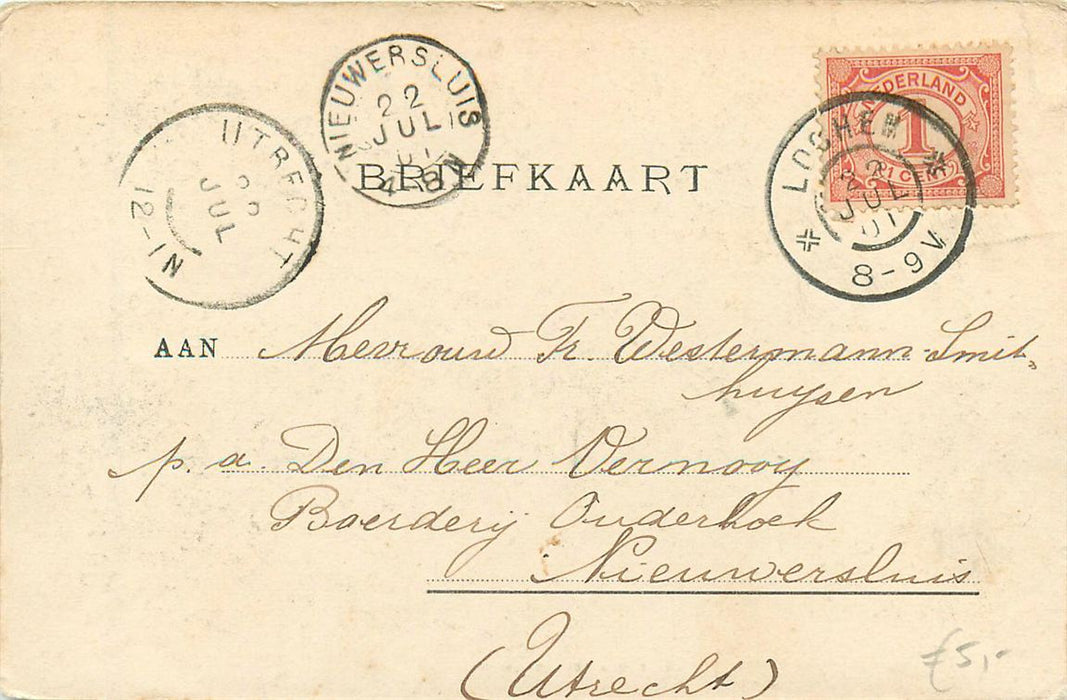 NIEUWERSLUIS
22
JUL
01
4-8N
UTRECHT
JUL
12-1N
NEDERLAND
1
CT
LOCHEM
22
JUL
01
8-9V
BRIEFKAART
AAN Mevrouw Fr. Westermann-Smit,
huysen
p. a. Den Heer Vernooy
Boerderij Ouderhoek
Nieuwersluis
(Utrecht)
£5,-